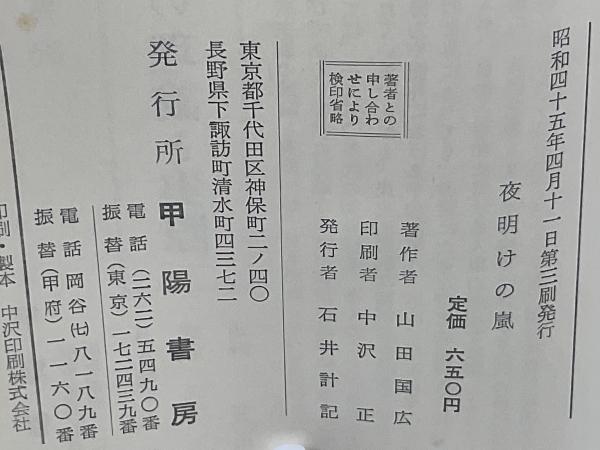 昭和四十五年四月十一日第三刷発行
夜明けの嵐
定価 六五〇円
著作者 山田国広
印刷者 中沢正
発行者 石井計記
著者との
申し合わ
せにより
検印省略
東京都千代田区神保町二ノ四〇
長野県下諏訪町清水町四三七二
発行所 甲陽書房
電話(二六二)五四九〇番
振替(東京)一七二四三九番
電話岡谷(七)八一八九番
振替(甲府)一一六〇番
印刷・製本 中沢印刷株式会社